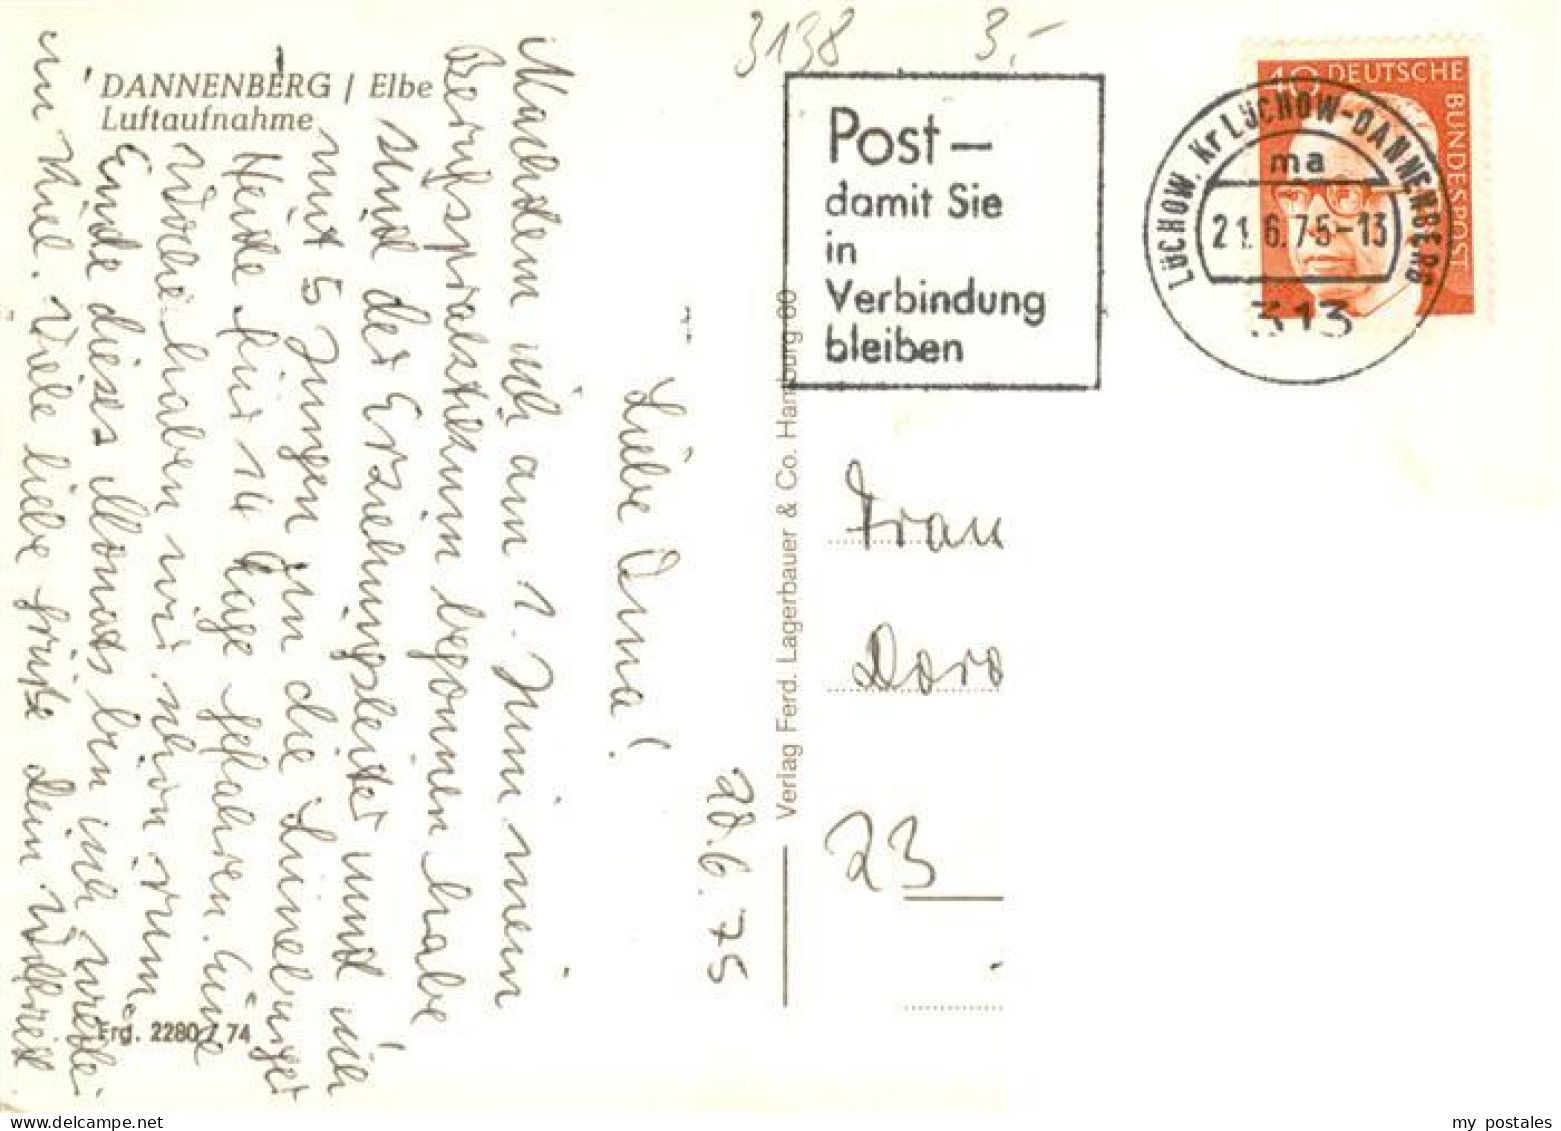 DANNENBERG / Elbe
Luftaufnahme
3138 3.-
Post -
damit Sie
in
Verbindung
bleiben
40 DEUTSCHE
BUNDESPOST
LÜCHOW, Kr LÜCHOW-DANNENBERG
ma
21.6.75-13
313
20.6.75
Liebe Oma!
Nachdem ich am 1. Juni mein
Berufspraktikum begonnen habe
sind der Erziehungsleiter und ich
mit 5 Jungen in die Lüneburger
Heide für 14 Tage gefahren. Eine
Woche haben wir schon rum.
Ende dieses Monats bin ich wieder
in Kiel. Viele liebe Grüße Dein Wilfried.
Frau
Doro
23
Verlag Ferd. Lagerbauer & Co. Hamburg 60
Frg. 2280 / 74
my postales